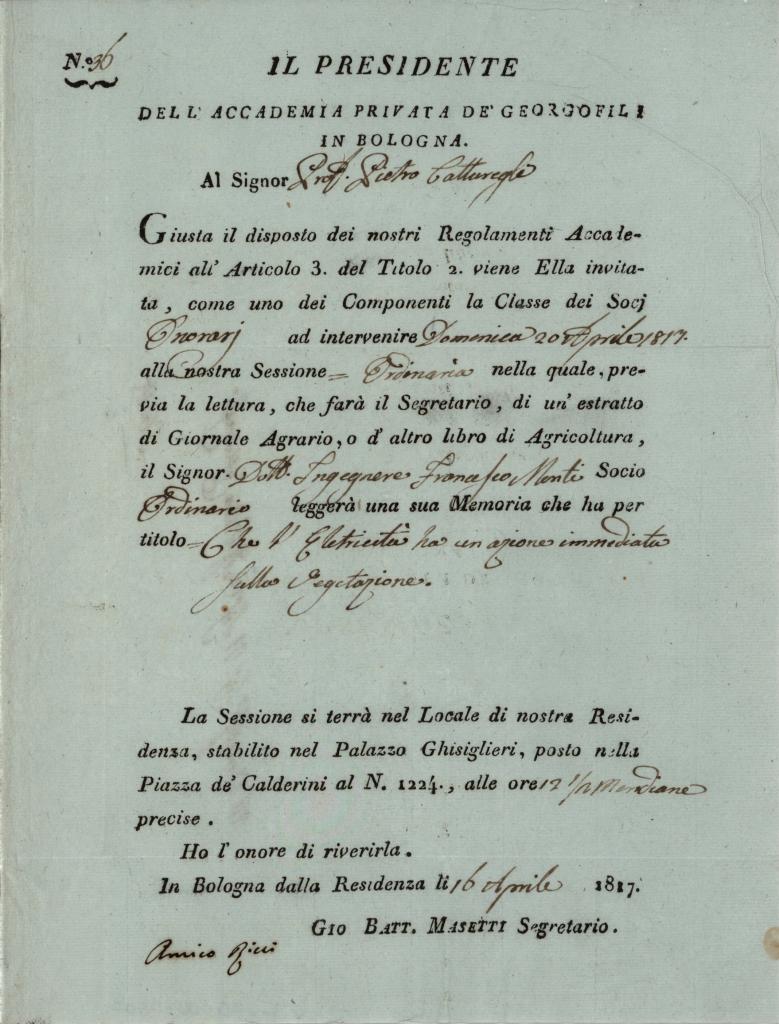 N.o 36
IL PRESIDENTE
DELL' ACCADEMIA PRIVATA DE' GEORGOFILI
IN BOLOGNA.
Al Signor Prof. Pietro Catturegli
Giusta il disposto dei nostri Regolamenti Accade-
mici all' Articolo 3. del Titolo 2. viene Ella invita-
ta, come uno dei Componenti la Classe dei Socj
Onorarj ad intervenire Domenica 20 Aprile 1817.
alla nostra Sessione = Ordinaria nella quale, pre-
via la lettura, che farà il Segretario, di un' estratto
di Giornale Agrario, o d' altro libro di Agricoltura,
il Signor Dott. Ingegnere Francesco Monti Socio
Ordinario leggerà una sua Memoria che ha per
titolo = Che l' Eletricità ha un azione immediata
sulla Vegetazione.
La Sessione si terrà nel Locale di nostra Resi-
denza, stabilito nel Palazzo Ghisiglieri, posto nella
Piazza de' Calderini al N. 1224., alle ore 12 1/2 Meridiane
precise.
Ho l' onore di riverirla.
In Bologna dalla Residenza li 16 Aprile 1817.
GIO BATT. MASETTI Segretario.
Amico Ricci